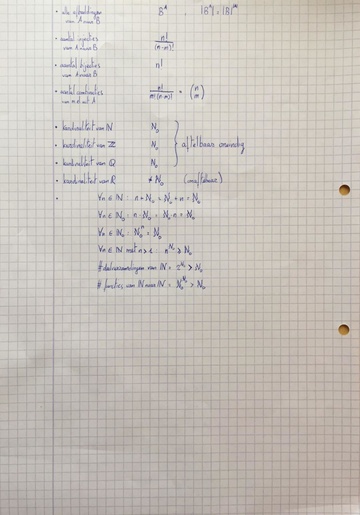 • alle afbeeldingen van A naar B   B^A , |B^A| = |B|^|A|
• aantal injecties van A naar B   n! / (n-m)!
• aantal bijecties van A naar B   n!
• aantal combinaties van m uit A   n! / m!(n-m)! = (n m)
• kardinaliteit van ℕ   ℵ₀
• kardinaliteit van ℤ   ℵ₀   } aftelbaar oneindig
• kardinaliteit van ℚ   ℵ₀
• kardinaliteit van ℝ   ≠ ℵ₀ (overaftelbaar)
• ∀n ∈ ℕ : n + ℵ₀ = ℵ₀ + n = ℵ₀
∀n ∈ ℕ₀ : n · ℵ₀ = ℵ₀ · n = ℵ₀
∀n ∈ ℕ₀ : ℵ₀^n = ℵ₀
∀n ∈ ℕ met n > 1 : n^ℵ₀ > ℵ₀
# deelverzamelingen van ℕ = 2^ℵ₀ > ℵ₀
# functies van ℕ naar ℕ = ℵ₀^ℵ₀ > ℵ₀